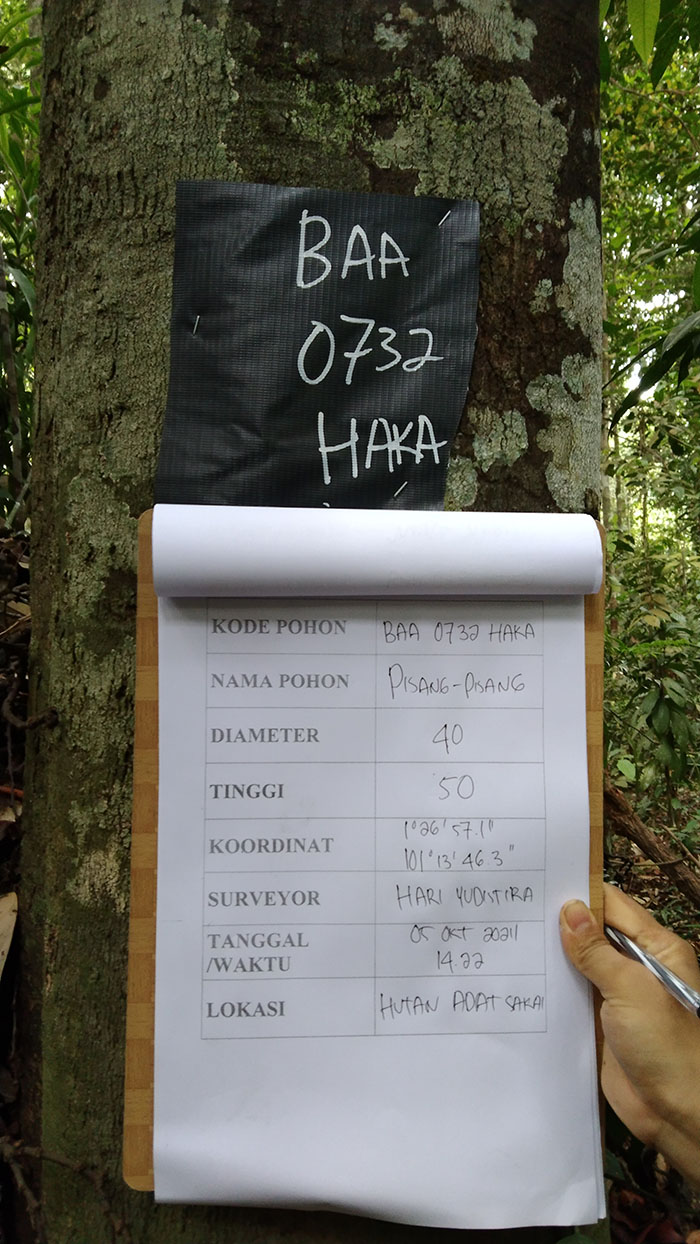 BAA
0732
HAKA
KODE POHON BAA 0732 HAKA
NAMA POHON PISANG-PISANG
DIAMETER 40
TINGGI 50
KOORDINAT 1°26'57.1"
101°13'46.3"
SURVEYOR HARI YUDISTIRA
TANGGAL 05 OKT 2021
/WAKTU 14.22
LOKASI HUTAN ADAT SAKAI